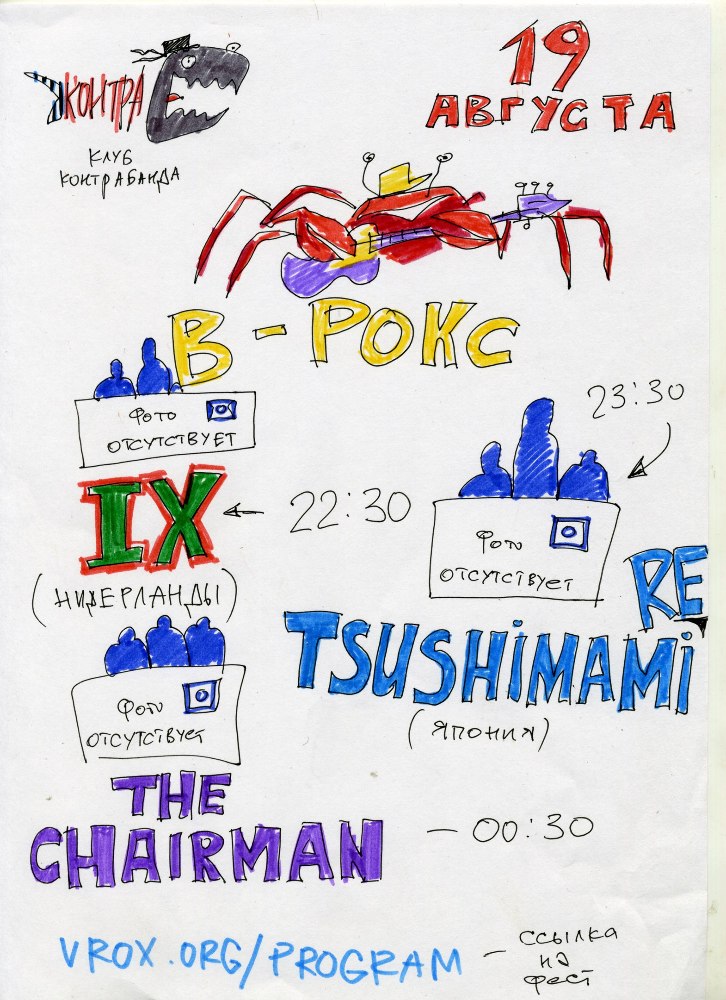 КОНТРА
КЛУБ
КОНТРАБАНДА
19
АВГУСТА
В-РОКС
ФОТО
ОТСУТСТВУЕТ
23:30
IX
22:30
(НИДЕРЛАНДЫ)
ФОТО
ОТСУТСТВУЕТ
RE
TSUSHiMAMi
(ЯПОНИЯ)
ФОТО
ОТСУТСТВУЕТ
THE
CHAIRMAN
- 00:30
VROX.ORG/PROGRAM
- ССЫЛКА
НА
ФЕСТ